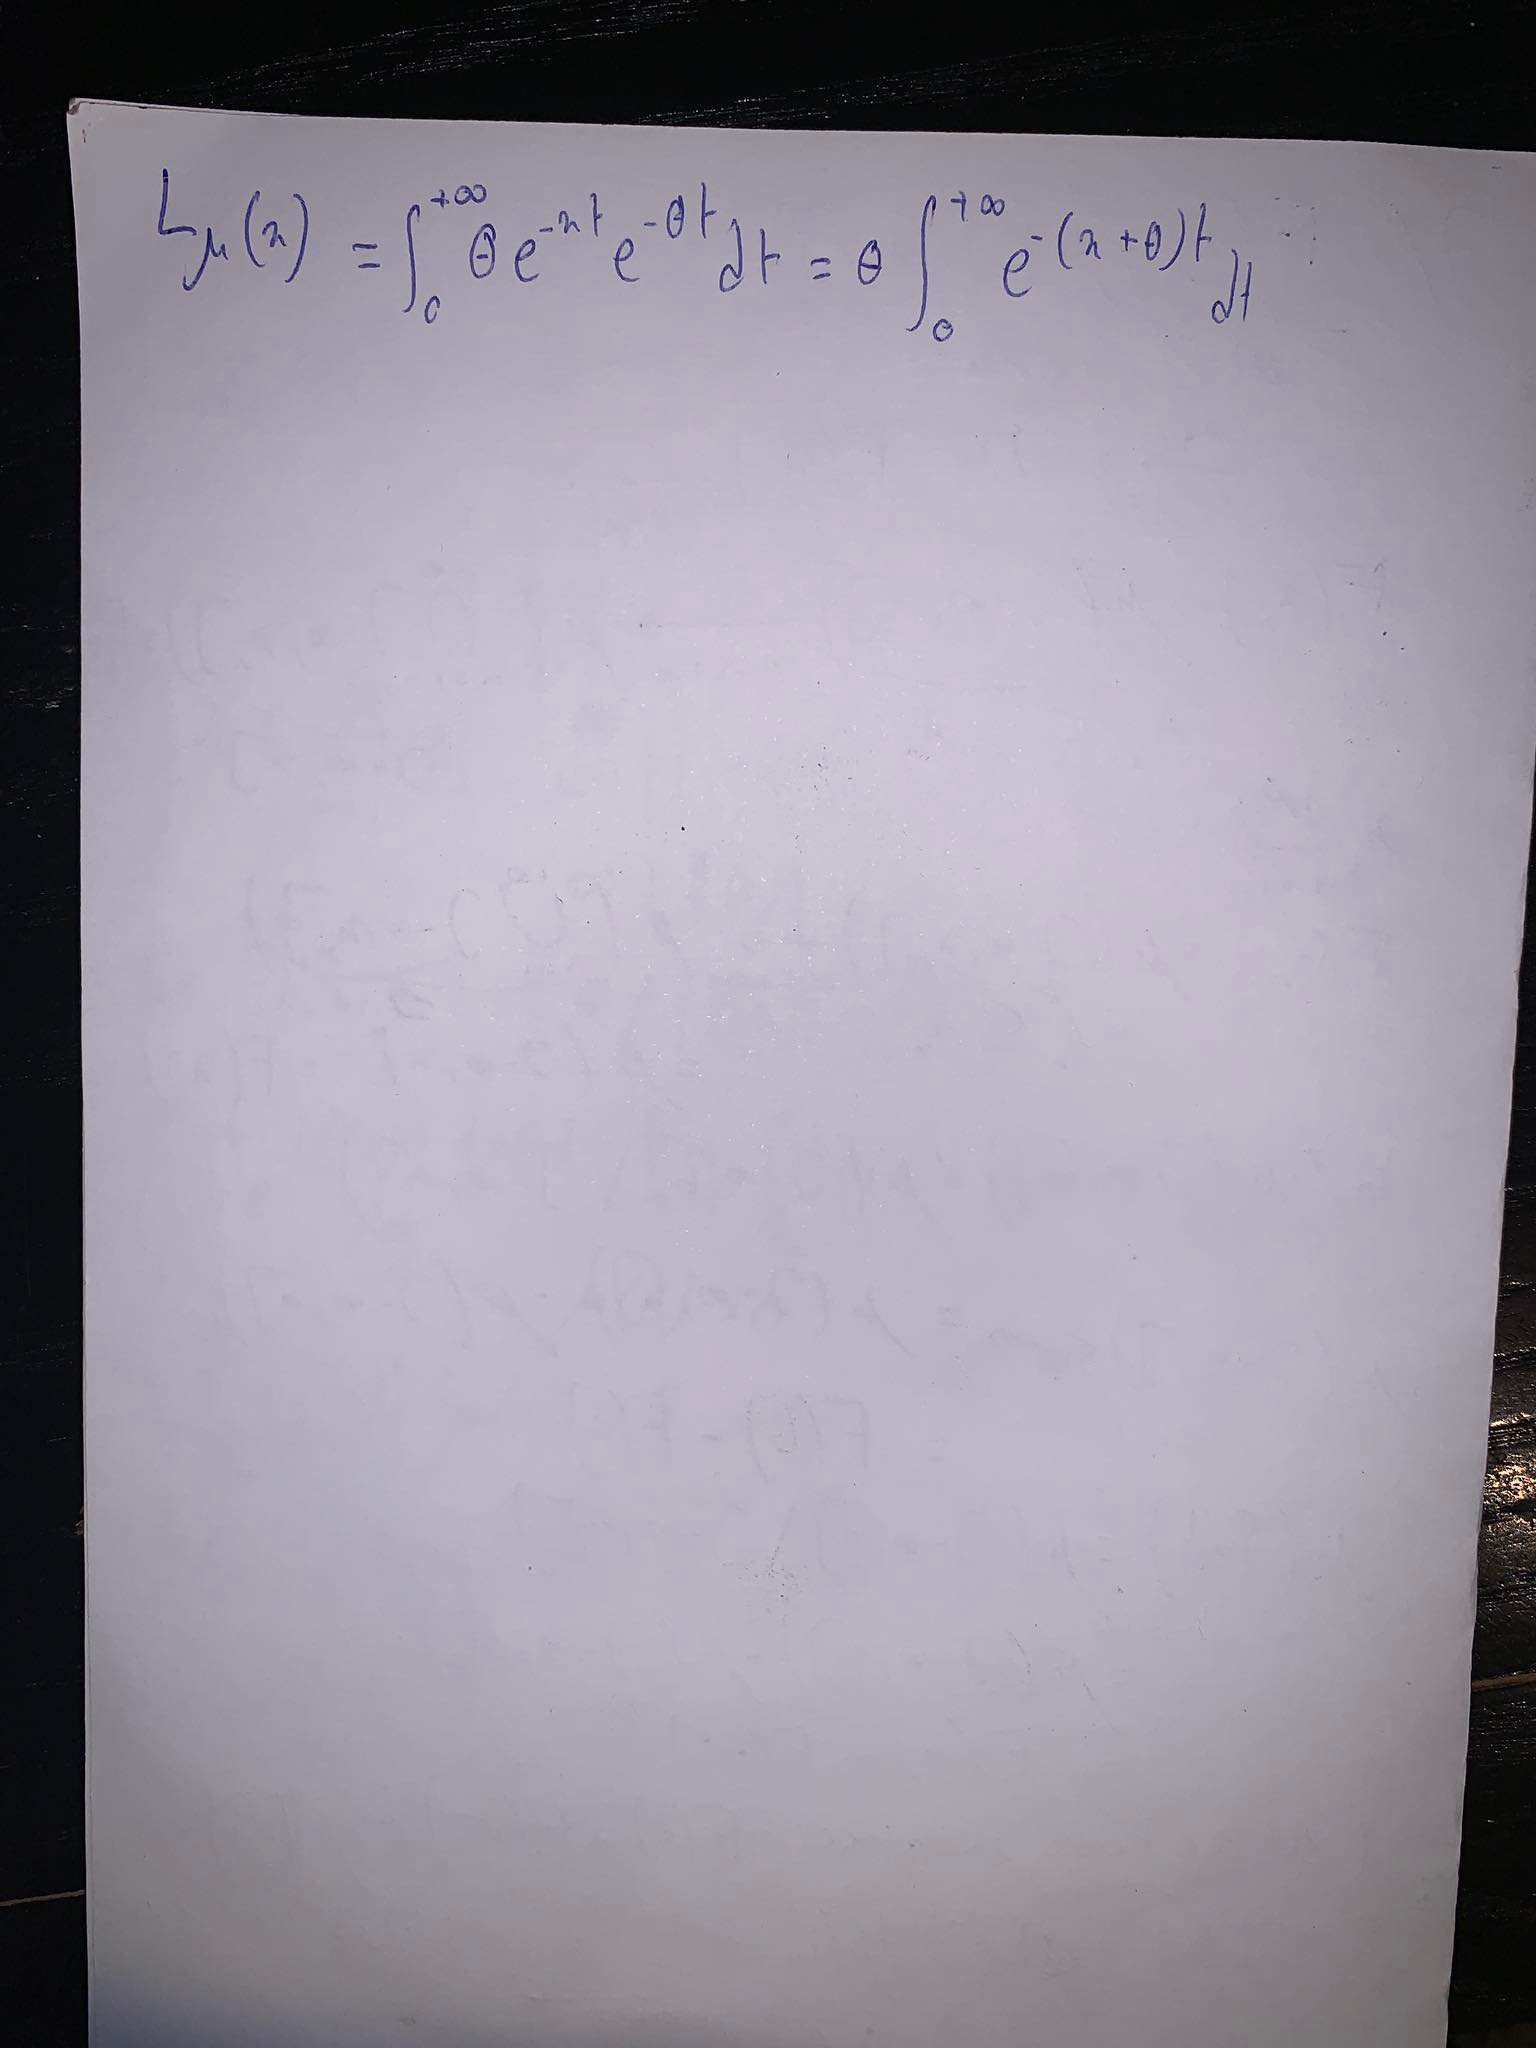 L_μ(x) = ∫_0^{+∞} θ e^{-xt} e^{-θt} dt = θ ∫_0^{+∞} e^{-(x+θ)t} dt